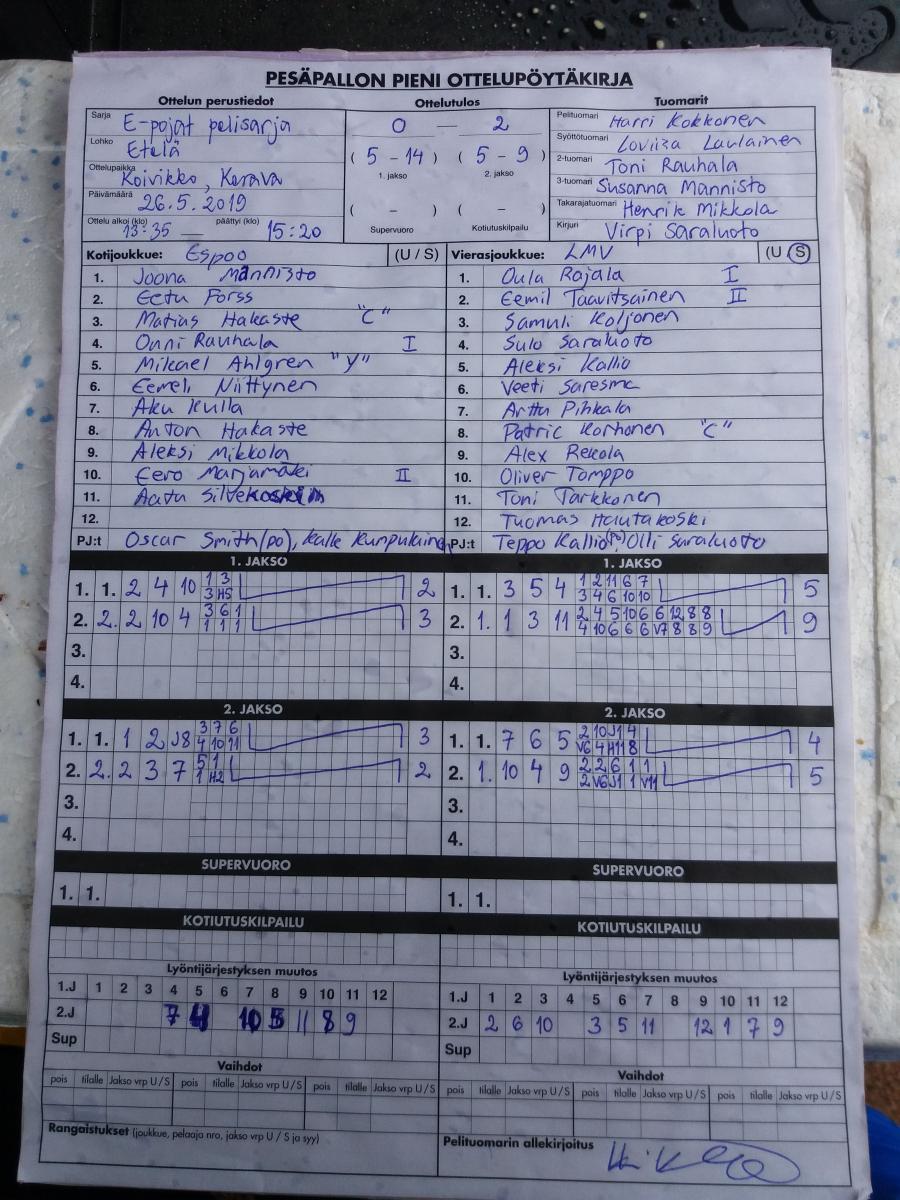 PESÄPALLON PIENI OTTELUPÖYTÄKIRJA
Ottelun perustiedot Ottelutulos Tuomarit
Sarja E-pojat pelisarja 0 — 2 Pelituomari Harri Kokkonen
Lohko Etelä ( 5 - 14 ) ( 5 - 9 ) Syöttötuomari Loviisa Laulainen
1. jakso 2. jakso 2-tuomari Toni Rauhala
Ottelupaikka Koivikko, Kerava 3-tuomari Susanna Männistö
Päivämäärä 26.5.2019 ( - ) ( - ) Takarajatuomari Henrik Mikkola
Ottelu alkoi (klo) 13:35 — päättyi (klo) 15:20 Supervuoro Kotiutuskilpailu Kirjuri Virpi Saraluoto
Kotijoukkue: Espoo (U / S) Vierasjoukkue: LMV (U / S)
1. Joona Männistö 1. Oula Rajala I
2. Eetu Forss 2. Eemil Taavitsainen II
3. Matias Hakaste "C" 3. Samuli Koljonen
4. Onni Rauhala I 4. Sulo Saraluoto
5. Mikael Ahlgren "V" 5. Aleksi Kallio
6. Eemeli Niittynen 6. Veeti Saresma
7. Aku Kulla 7. Arttu Pihkala
8. Anton Hakaste 8. Patric Korhonen "C"
9. Aleksi Mikkola 9. Alex Rekola
10. Eero Marjamäki II 10. Oliver Tomppo
11. Aatu 11. Toni Tarkkonen
12. 12. Tuomas Hautakoski
PJ:t Oscar Smith(po), Kalle PJ:t Teppo Kallio(po), Olli Saraluoto
1. JAKSO 1. JAKSO
1. 1. 2 4 10 1 3 2 1. 1. 3 5 4 1 2 11 6 7 5
3 H5 3 4 6 10 10
2. 2. 2 10 4 3 6 1 3 2. 1. 1 3 11 2 4 5 10 6 6 12 8 8 9
1 1 1 4 10 6 6 6 V7 8 8 9
3. 3.
4. 4.
2. JAKSO 2. JAKSO
1. 1. 1 2 J8 3 7 6 3 1. 1. 7 6 5 2 10 J1 4 4
4 10 11 V6 4 H11 8
2. 2. 2 3 7 5 1 2 2. 1. 10 4 9 2 2 6 1 1 5
1 H2 2 V6 J1 1 V11
3. 3.
4. 4.
SUPERVUORO SUPERVUORO
1. 1. 1. 1.
KOTIUTUSKILPAILU KOTIUTUSKILPAILU
Lyöntijärjestyksen muutos Lyöntijärjestyksen muutos
1.J 1 2 3 4 5 6 7 8 9 10 11 12 1.J 1 2 3 4 5 6 7 8 9 10 11 12
2.J 7 4 10 5 11 8 9 2.J 2 6 10 3 5 11 12 1 7 9
Sup Sup
Vaihdot Vaihdot
pois tilalle Jakso vrp U / S pois tilalle Jakso vrp U / S pois tilalle Jakso vrp U / S pois tilalle Jakso vrp U / S pois tilalle Jakso vrp U / S pois tilalle Jakso vrp U / S
Rangaistukset (joukkue, pelaaja nro, jakso vrp U / S ja syy) Pelituomarin allekirjoitus